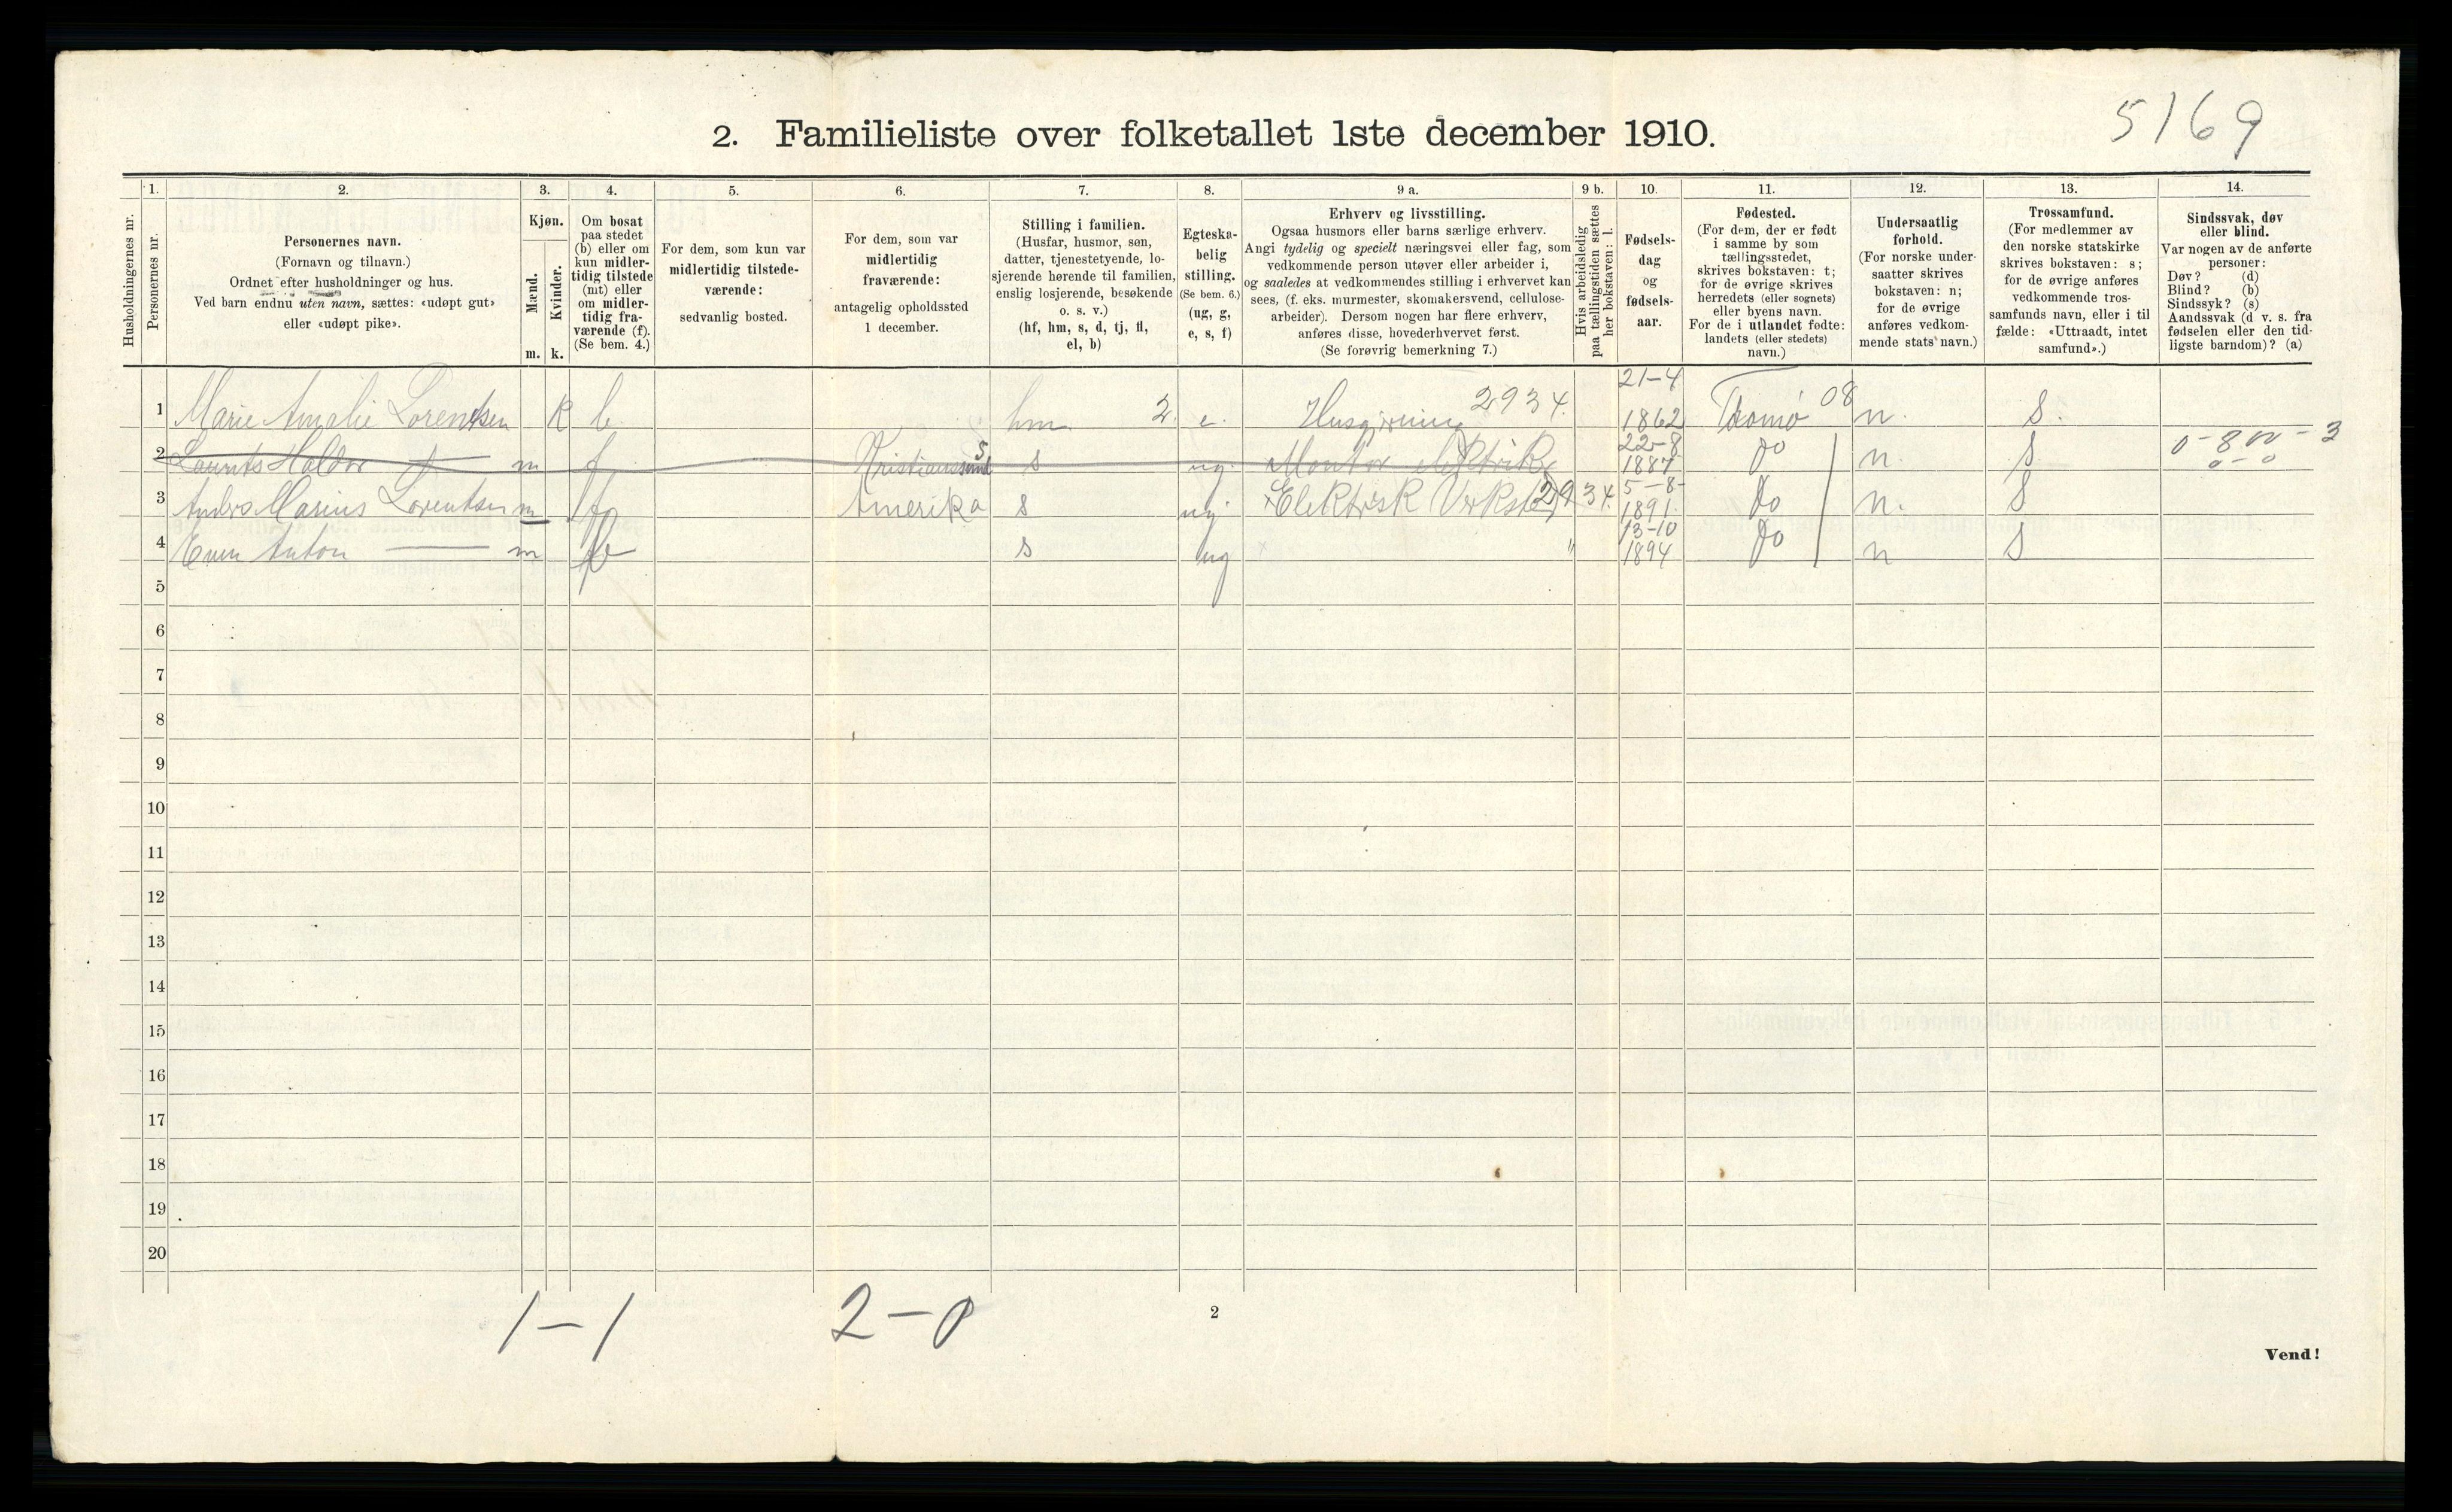 5169
2. Familieliste over folketallet 1ste december 1910.
Husholdningernes nr.
1.
Personernes nr.
2.
Personernes navn.
(Fornavn og tilnavn.)
Ordnet efter husholdninger og hus.
Ved barn endnu uten navn, sættes: «udøpt gut»
eller «udøpt pike».
3.
Kjøn.
Mænd.
Kvinder.
m. k.
4.
Om bosat
paa stedet
(b) eller om
kun midler-
tidig tilstede
(mt) eller
om midler-
tidig fra-
værende (f).
(Se bem. 4.)
5.
For dem, som kun var
midlertidig tilstede-
værende:
sedvanlig bosted.
6.
For dem, som var
midlertidig
fraværende:
antagelig opholdssted
1 december.
7.
Stilling i familien.
(Husfar, husmor, søn,
datter, tjenestetyende, lo-
sjerende hørende til familien,
enslig losjerende, besøkende
o. s. v.)
(hf, hm, s, d, tj, fl,
el, b)
8.
Egteska-
belig
stilling.
(Se bem. 6.)
(ug, g,
e, s, f)
9 a.
Erhverv og livsstilling.
Ogsaa husmors eller barns særlige erhverv.
Angi tydelig og specielt næringsvei eller fag, som
vedkommende person utøver eller arbeider i,
og saaledes at vedkommendes stilling i erhvervet kan
sees, (f. eks. murmester, skomakersvend, cellulose-
arbeider). Dersom nogen har flere erhverv,
anføres disse, hovederhvervet først.
(Se forøvrig bemerkning 7.)
9 b.
Hvis arbeidsledig
paa tællingstiden sættes
her bokstaven: l.
10.
Fødsels-
dag
og
fødsels-
aar.
11.
Fødested.
(For dem, der er født
i samme by som
tællingsstedet,
skrives bokstaven: t;
for de øvrige skrives
herredets (eller sognets)
eller byens navn.
For de i utlandet fødte:
landets (eller stedets)
navn.)
12.
Undersaatlig
forhold.
(For norske under-
saatter skrives
bokstaven: n;
for de øvrige
anføres vedkom-
mende stats navn.)
13.
Trossamfund.
(For medlemmer av
den norske statskirke
skrives bokstaven: s;
for de øvrige anføres
vedkommende tros-
samfunds navn, eller i til
fælde: «Uttraadt, intet
samfund».)
14.
Sindssvak, døv
eller blind.
Var nogen av de anførte
personer:
Døv? (d)
Blind? (b)
Sindssyk? (s)
Aandssvak (d v. s. fra
fødselen eller den tid-
ligste barndom)? (a)
1 Marie Amalie Lorentsen k b hm 2. e. Husgjerning 2934. 21-4 1862 Tromø 08 n. S.
2 Laurits Haldor — m f Kristianssund S s ug. Montør elektrik 22-8 1887 do n. S 0-800-3
0-0
3 Anders Marius Lorentsen m f Amerika s ug. Elektrisk Verksted 2934. 5-8- 1891 do n. S
4 Even Anton — m s ug " 13-10 1894 do n S
5
6
7
8
9
10
11
12
13
14
15
16
17
18
19
20
1-1 2-0
2
Vend!